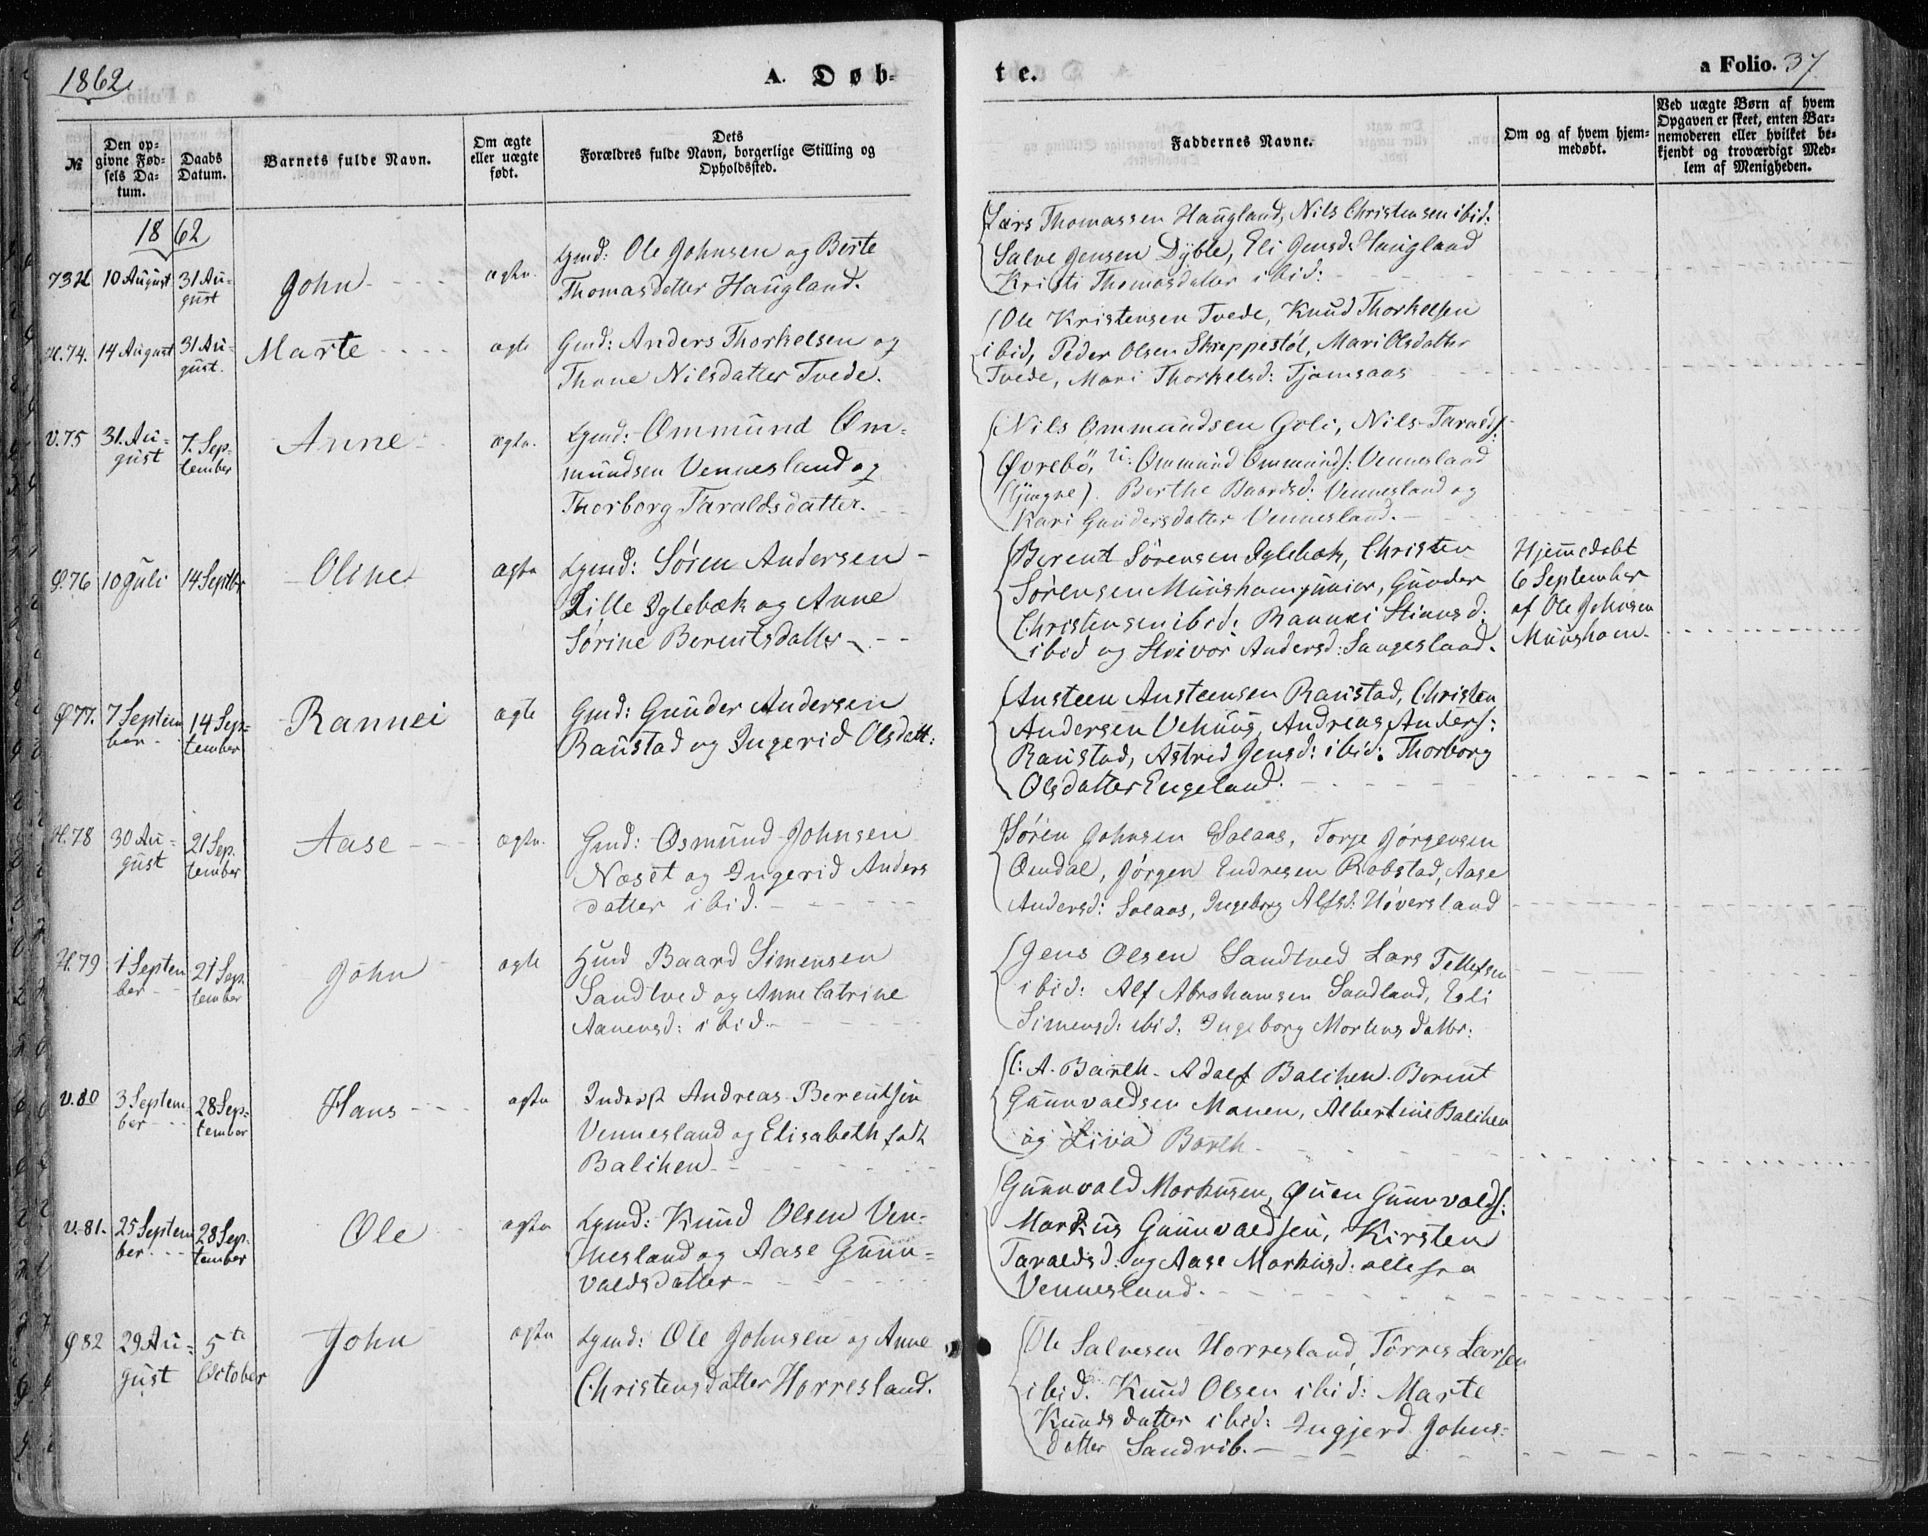 1862
A. Døb-
te.
a Folio. 37
№
Den op-
givne Fød-
sels Da-
tum.
Daabs
Datum.
Barnets fulde Navn.
Om ægte
eller uægte
født.
Dets
Forældres fulde Navn, borgerlige Stilling og
Opholdssted.
Faddernes Navne.
Om og af hvem hjem-
medøbt.
Ved uægte Børn af hvem
Opgaven er skeet, enten Bar-
nemoderen eller hvilket be-
kjendt og troværdigt Med-
lem af Menigheden.
1862
73 H
10 August
31 Au-
gust
John
ægte.
Lgmd: Ole Johnsen og Berte
Thomasdatter Haugland.
Lars Thomassen Haugland, Nils Christensen ibid:
Salve Jensen Dyble, Eli Jensd: Haugland
Kristi Thomasdatter ibid:
H. 74.
14 August
31 Au-
gust.
Marte
ægte
Gmd: Anders Thorkelsen og
Thone Nilsdatter Tvede.
Ole Kristensen Tvede, Knud Thorkelsen
ibid, Peder Olsen Skreppestøl, Mari Olsdatter
Tvede, Mari Thorkelsd: Tjomsaas
V. 75
31. Au-
gust
7. Sep-
tember
Anne
ægte.
Lgmd: Ommund Om-
mundsen Vennesland og
Thorborg Taraldsdatter.
Nils Ommundsen Goli, Nils Taralds:
Øvrebö, U: Ommund Ommunds: Vennesland
(yngre). Berthe Baardsd: Vennesland og
Kari Gundersdatter Vennesland.
Ø. 76
10 Juli
14 Septbr
Oline
ægte
Lgmd: Søren Andersen
Lille Iglebæk og Anne
Sørine Berentsdatter
Berent Sørensen Iglebæk, Christen
Sørensen Muusham junior, Gunder
Christensen ibid: Rannei Stiansd:
ibid og Andersd: Saugesland.
Hjemedøbt
6 September
af Ole Johnsen
Muusham
Ø 77.
7 Septem
ber
14 Sep-
tember
Rannei
ægte
Gmd: Gunder Andersen
Raustad og Ingerid Olsdatt:
Austeen Austeensen Raustad, Christen
Andersen Vehuus, Andreas Anders:
Raustad, Astrid Jensd: ibid: Thorborg
Olsdatter Engeland.
H. 78
30 Au-
gust
21 Sep.
tember
Aase
ægte.
Gmd: Osmund Johnsen
Næset og Ingerid Anders
datter ibid.
Sören Johnsen Solaas, Torje Jörgensen
Omdal, Jørgen Endresen Robstad, Aase
Andersd: Solaas, Ingeborg Alfsd: Höversland
H. 79
1 Septem
ber
21 Sep.
tember
John
ægte
Hmd Baard Simensen
Sandtved og Anne Catrine
Aanensd: ibid.
Jens Olsen Sandtved Lars Tellefsen
ibid: Alf Abrahamsen Sandland, Eli
Simensd: ibid: Ingeborg Mortensdatter.
V. 80
3 Septem
ber
28 Sep-
tember
Hans
ægte
Inderst Andreas Berentsen
Vennesland og Elisabeth født
Balchen
C: A. Barth. Adolf Balchen. Berent
Gunnvaldsen Monen, Albertine Balchen
og Liva Barth
V. 81.
25 Septem
ber
28 Sep.
tember
Ole
ægte
Lgmd: Knud Olsen Ven-
nesland og Aase Gunn-
valdsdatter
Gunnvald Markusen, Øuen Gunnvalds:
Markus Gunnvaldsen, Kirsten
Taraldsd: og Aase Markusd: alle fra
Vennesland.
Ø 82
29 Au-
gust
5te
October
John
ægte
Lgmd: Ole Johnsen og Anne
Christensdatter Horresland.
Ole Salvesen Horresland, Törres Larsen
ibid. Knud Olsen ibid: Marte
Knudsdatter ibid: Ingjerd Johns-
datter Sandrib.